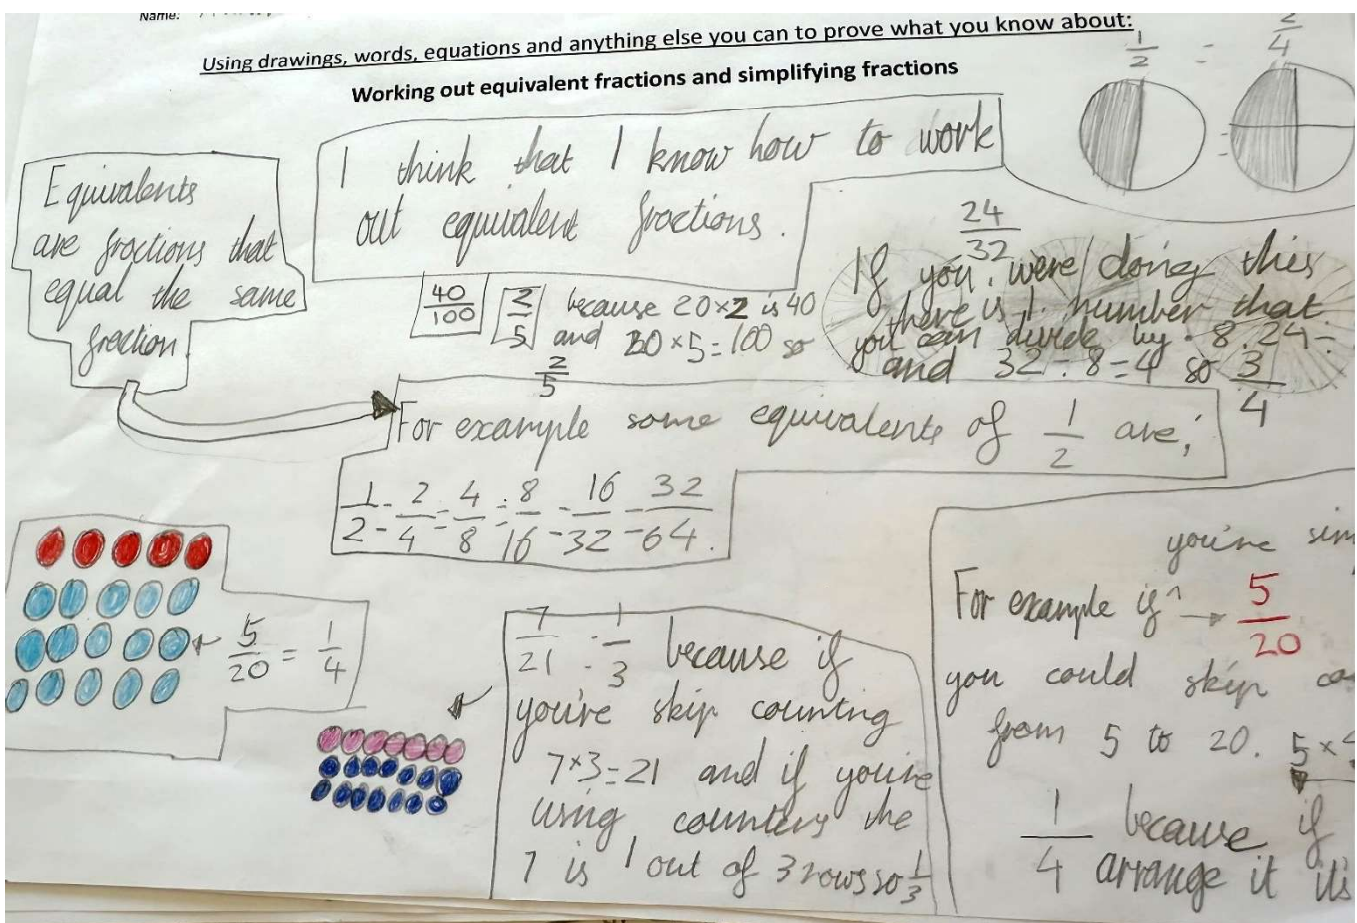 Name:
Using drawings, words, equations and anything else you can to prove what you know about:
Working out equivalent fractions and simplifying fractions
1/2 = 2/4
=
Equivalents
are fractions that
equal the same
fraction.
I think that I know how to work
out equivalent fractions.
40/100 2/5 because 20×2 is 40
and 20×5=100 so
2/5
24/32
If you were doing this
there is 1 number that
you can divide by. 8. 24÷
and 32÷8=4 so 3/4
For example some equivalents of 1/2 are;
1/2 = 2/4 = 4/8 = 8/16 = 16/32 = 32/64.
5/20 = 1/4
7/21 = 1/3 because if
you're skip counting
7×3=21 and if you're
using counters the
7 is 1 out of 3 rows so 1/3
you're sim
For example if → 5/20
you could skip co
from 5 to 20. 5×
1/4 because if
arrange it it's